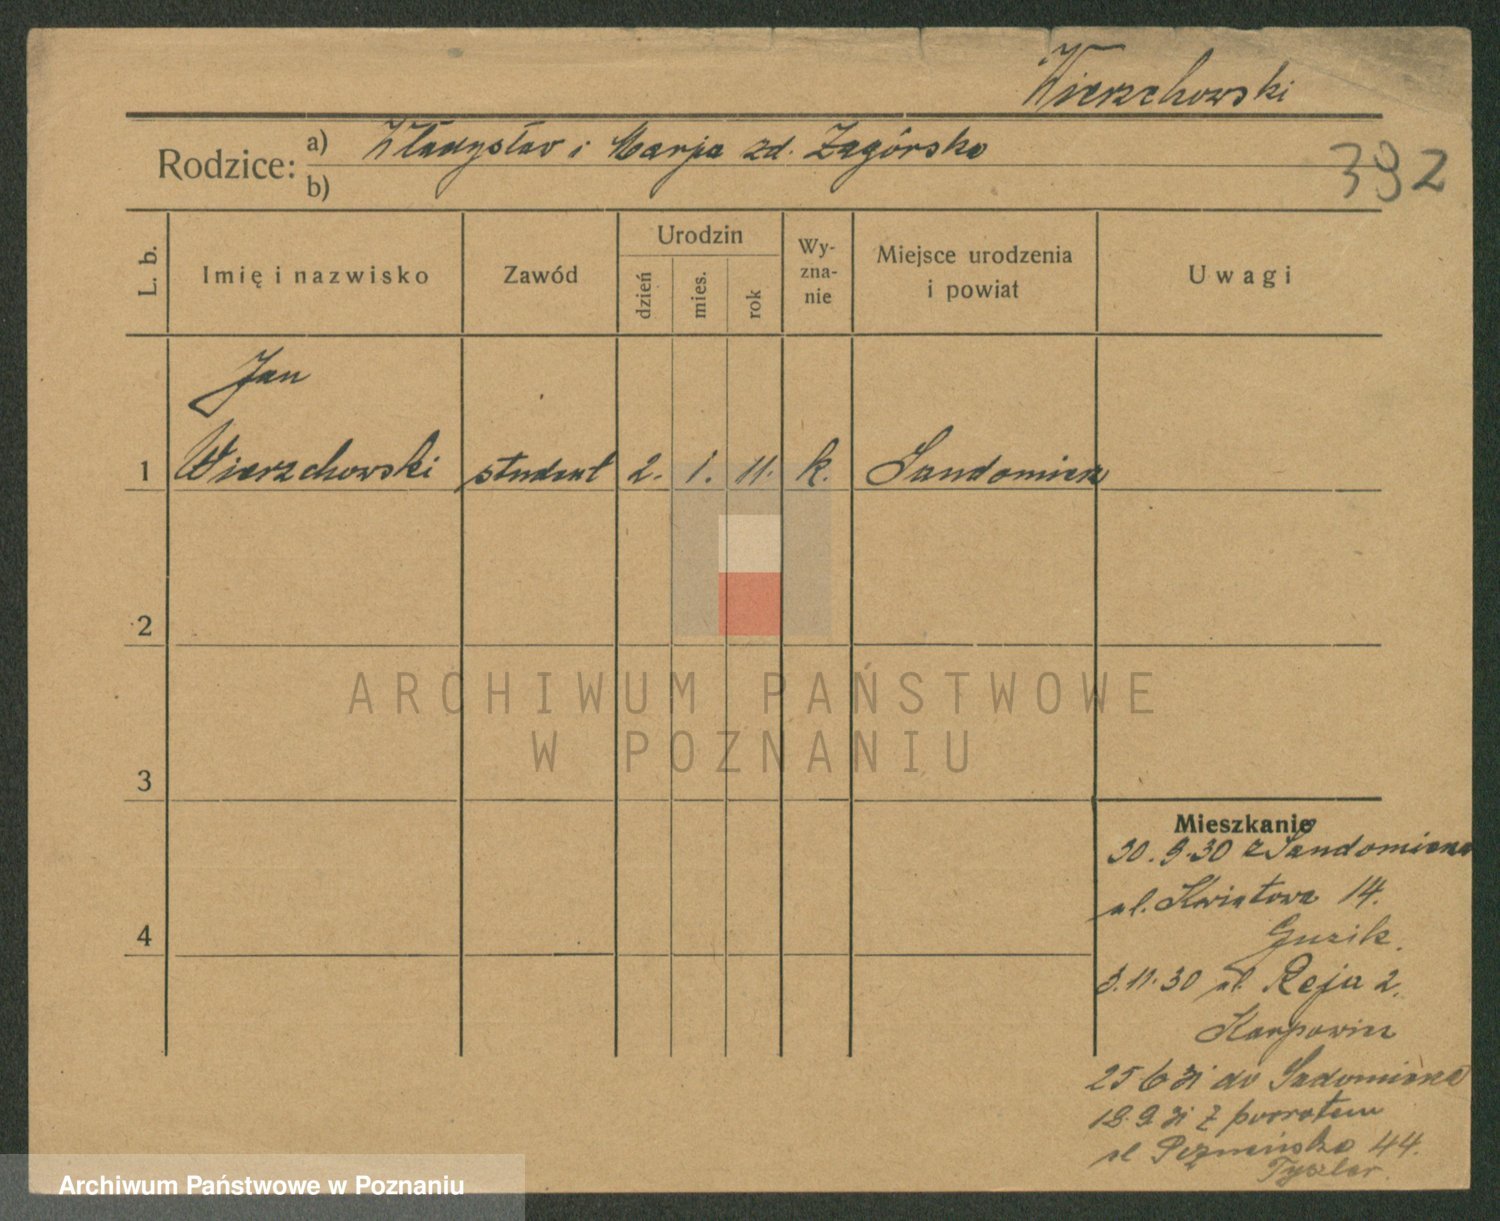 Wierzchowski
Rodzice: a) Władysław i Marja zd. Zagórska
b)
392
L. b.
Imię i nazwisko
Zawód
Urodzin
dzień
mies.
rok
Wy-
zna-
nie
Miejsce urodzenia
i powiat
Uwagi
Jan
1 Wierzchowski student 2. 1. 11. k. Sandomierz
2
ARCHIWUM PAŃSTWOWE
W POZNANIU
3
Mieszkanie
30.9.30 z Sandomierza
ul. Kwiatowa 14.
4
Guzik.
3.11.30 ul. Reja 2.
Karpowicz
25 6 31 do Sadomierza
18.9 31 z powrotem
ul 44.
Tyszler.
Archiwum Państwowe w Poznaniu